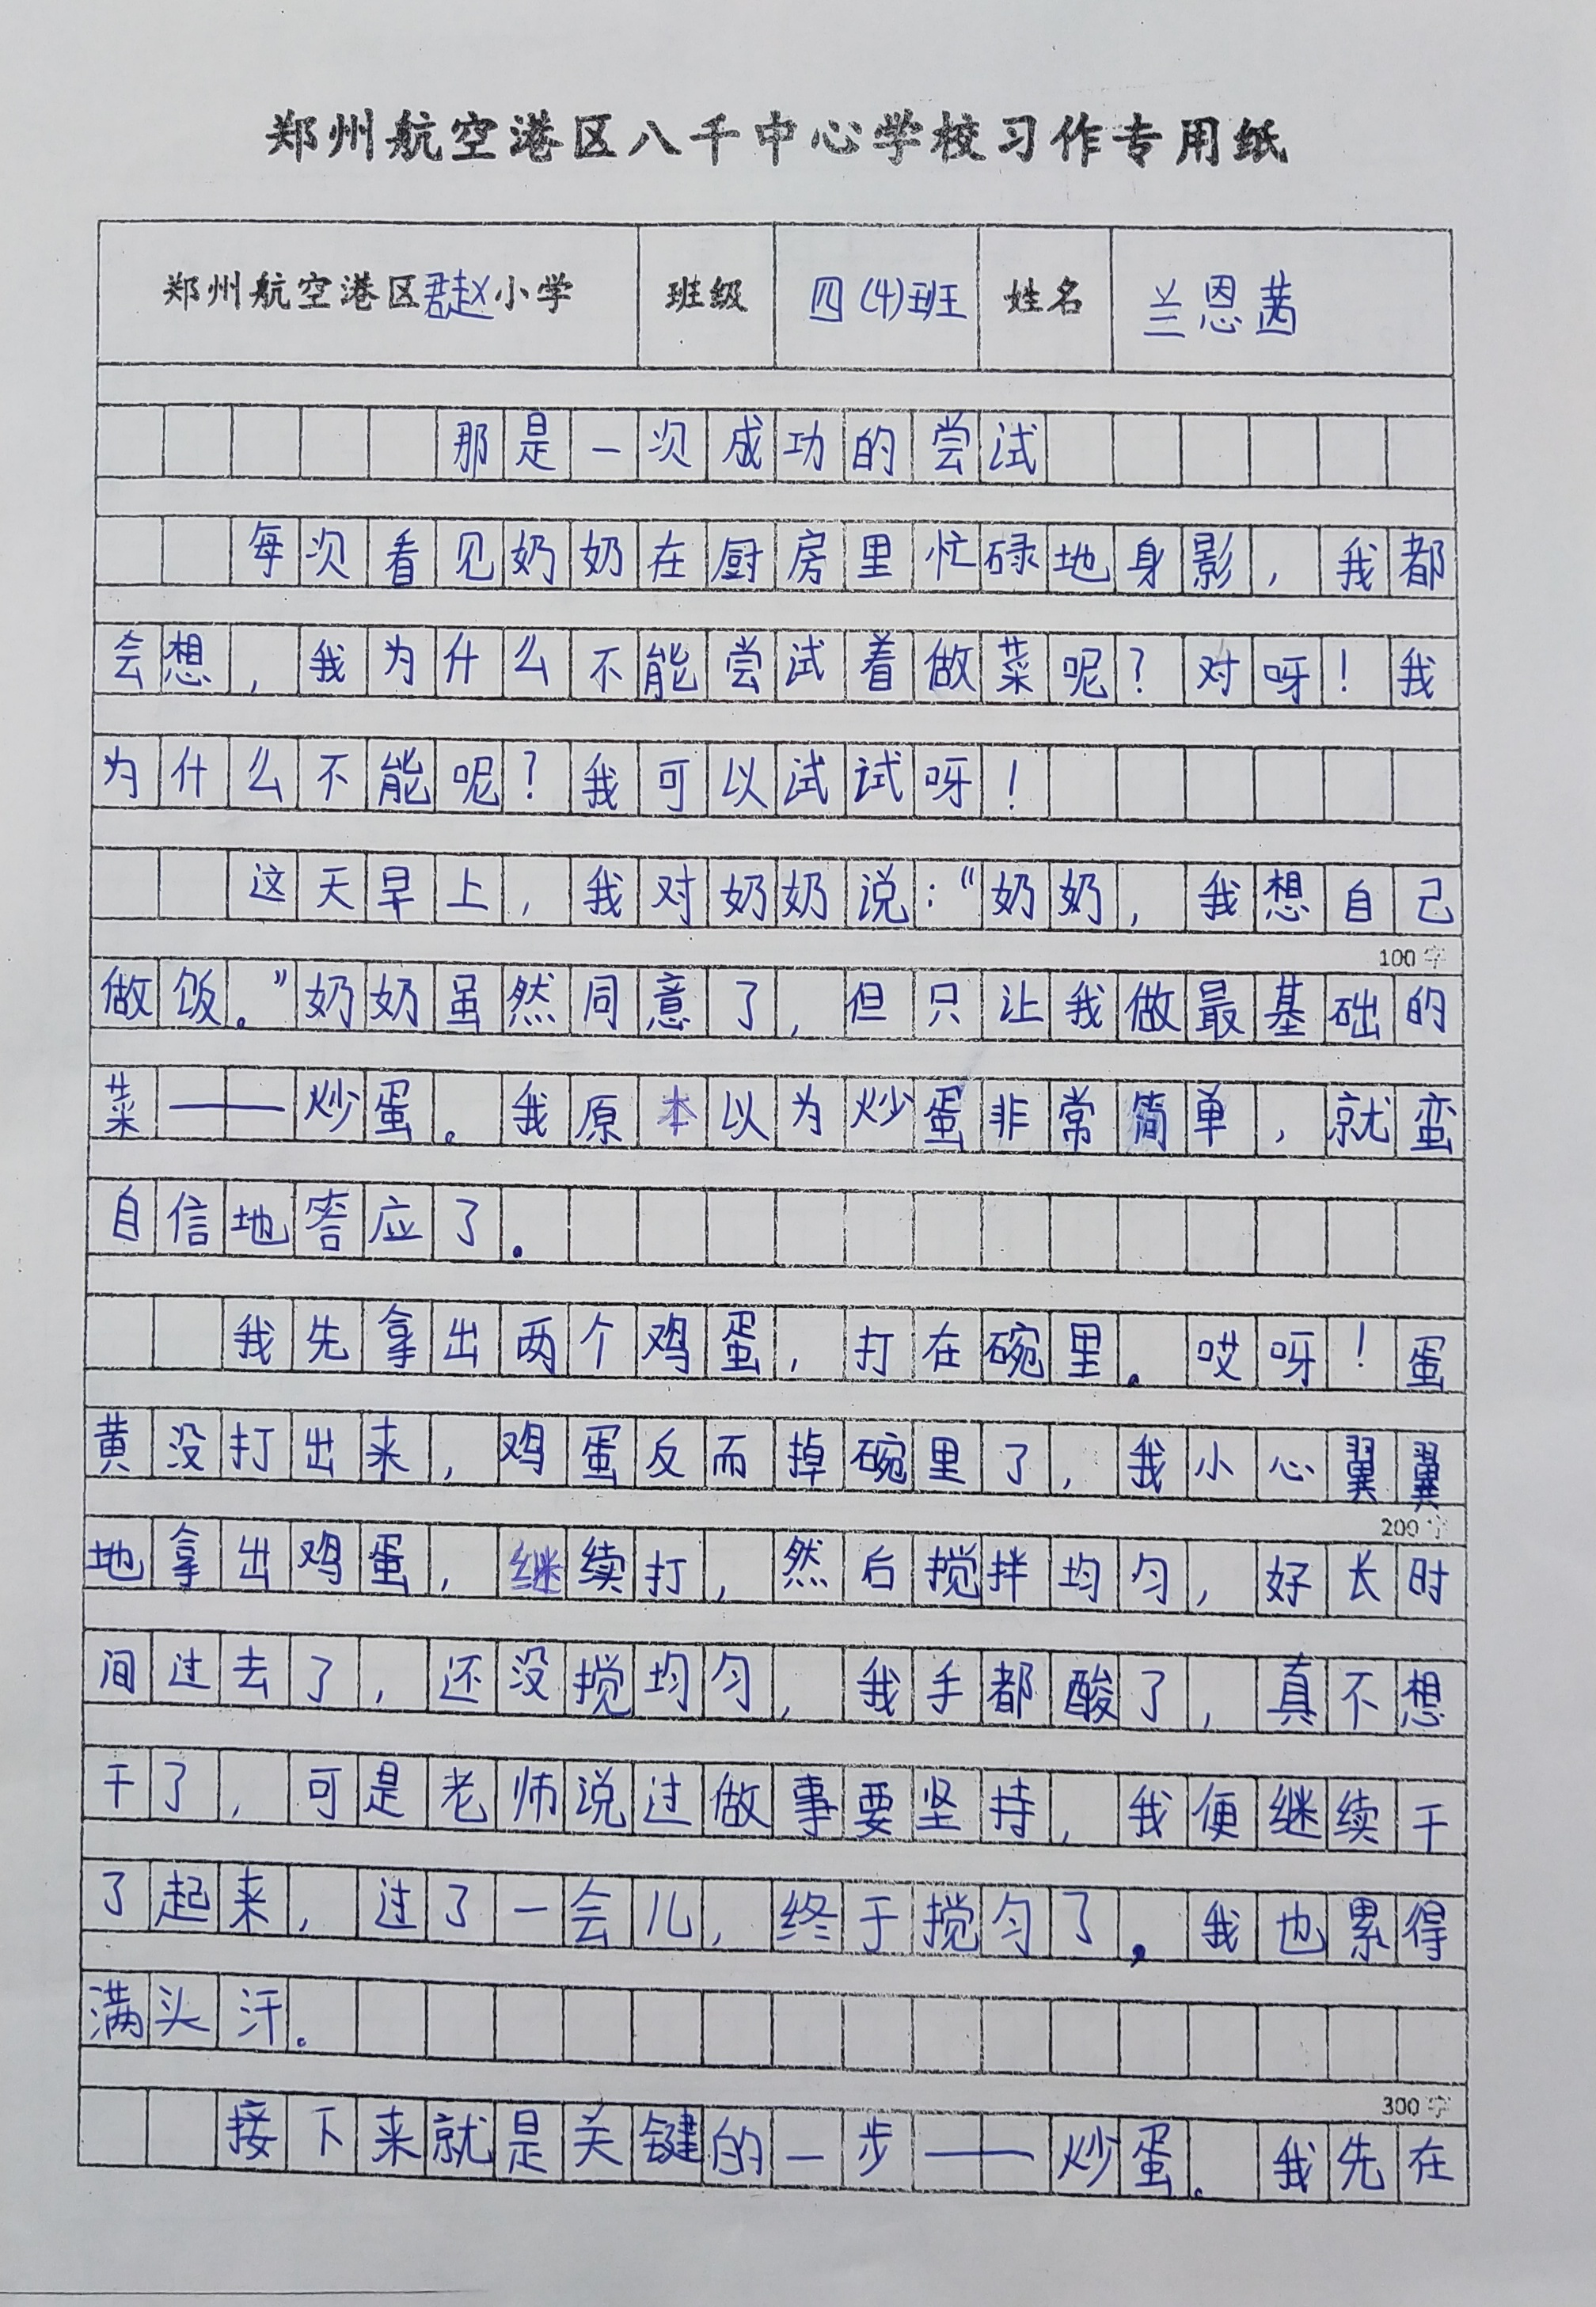 郑州航空港区八千中心学校习作专用纸
郑州航空港区君赵小学 班级 四(4)班 姓名 兰恩茜
那是一次成功的尝试
每次看见奶奶在厨房里忙碌地身影，我都
会想，我为什么不能尝试着做菜呢？对呀！我
为什么不能呢？我可以试试呀！
这天早上，我对奶奶说：“奶奶，我想自己
100字
做饭。”奶奶虽然同意了，但只让我做最基础的
菜——炒蛋。我原本以为炒蛋非常简单，就蛮
自信地答应了。
我先拿出两个鸡蛋，打在碗里。哎呀！蛋
黄没打出来，鸡蛋反而掉碗里了，我小心翼翼
200字
地拿出鸡蛋，继续打，然后搅拌均匀，好长时
间过去了，还没搅均匀，我手都酸了，真不想
干了，可是老师说过做事要坚持，我便继续干
了起来，过了一会儿，终于搅匀了。我也累得
满头汗。
300字
接下来就是关键的一步——炒蛋。我先在